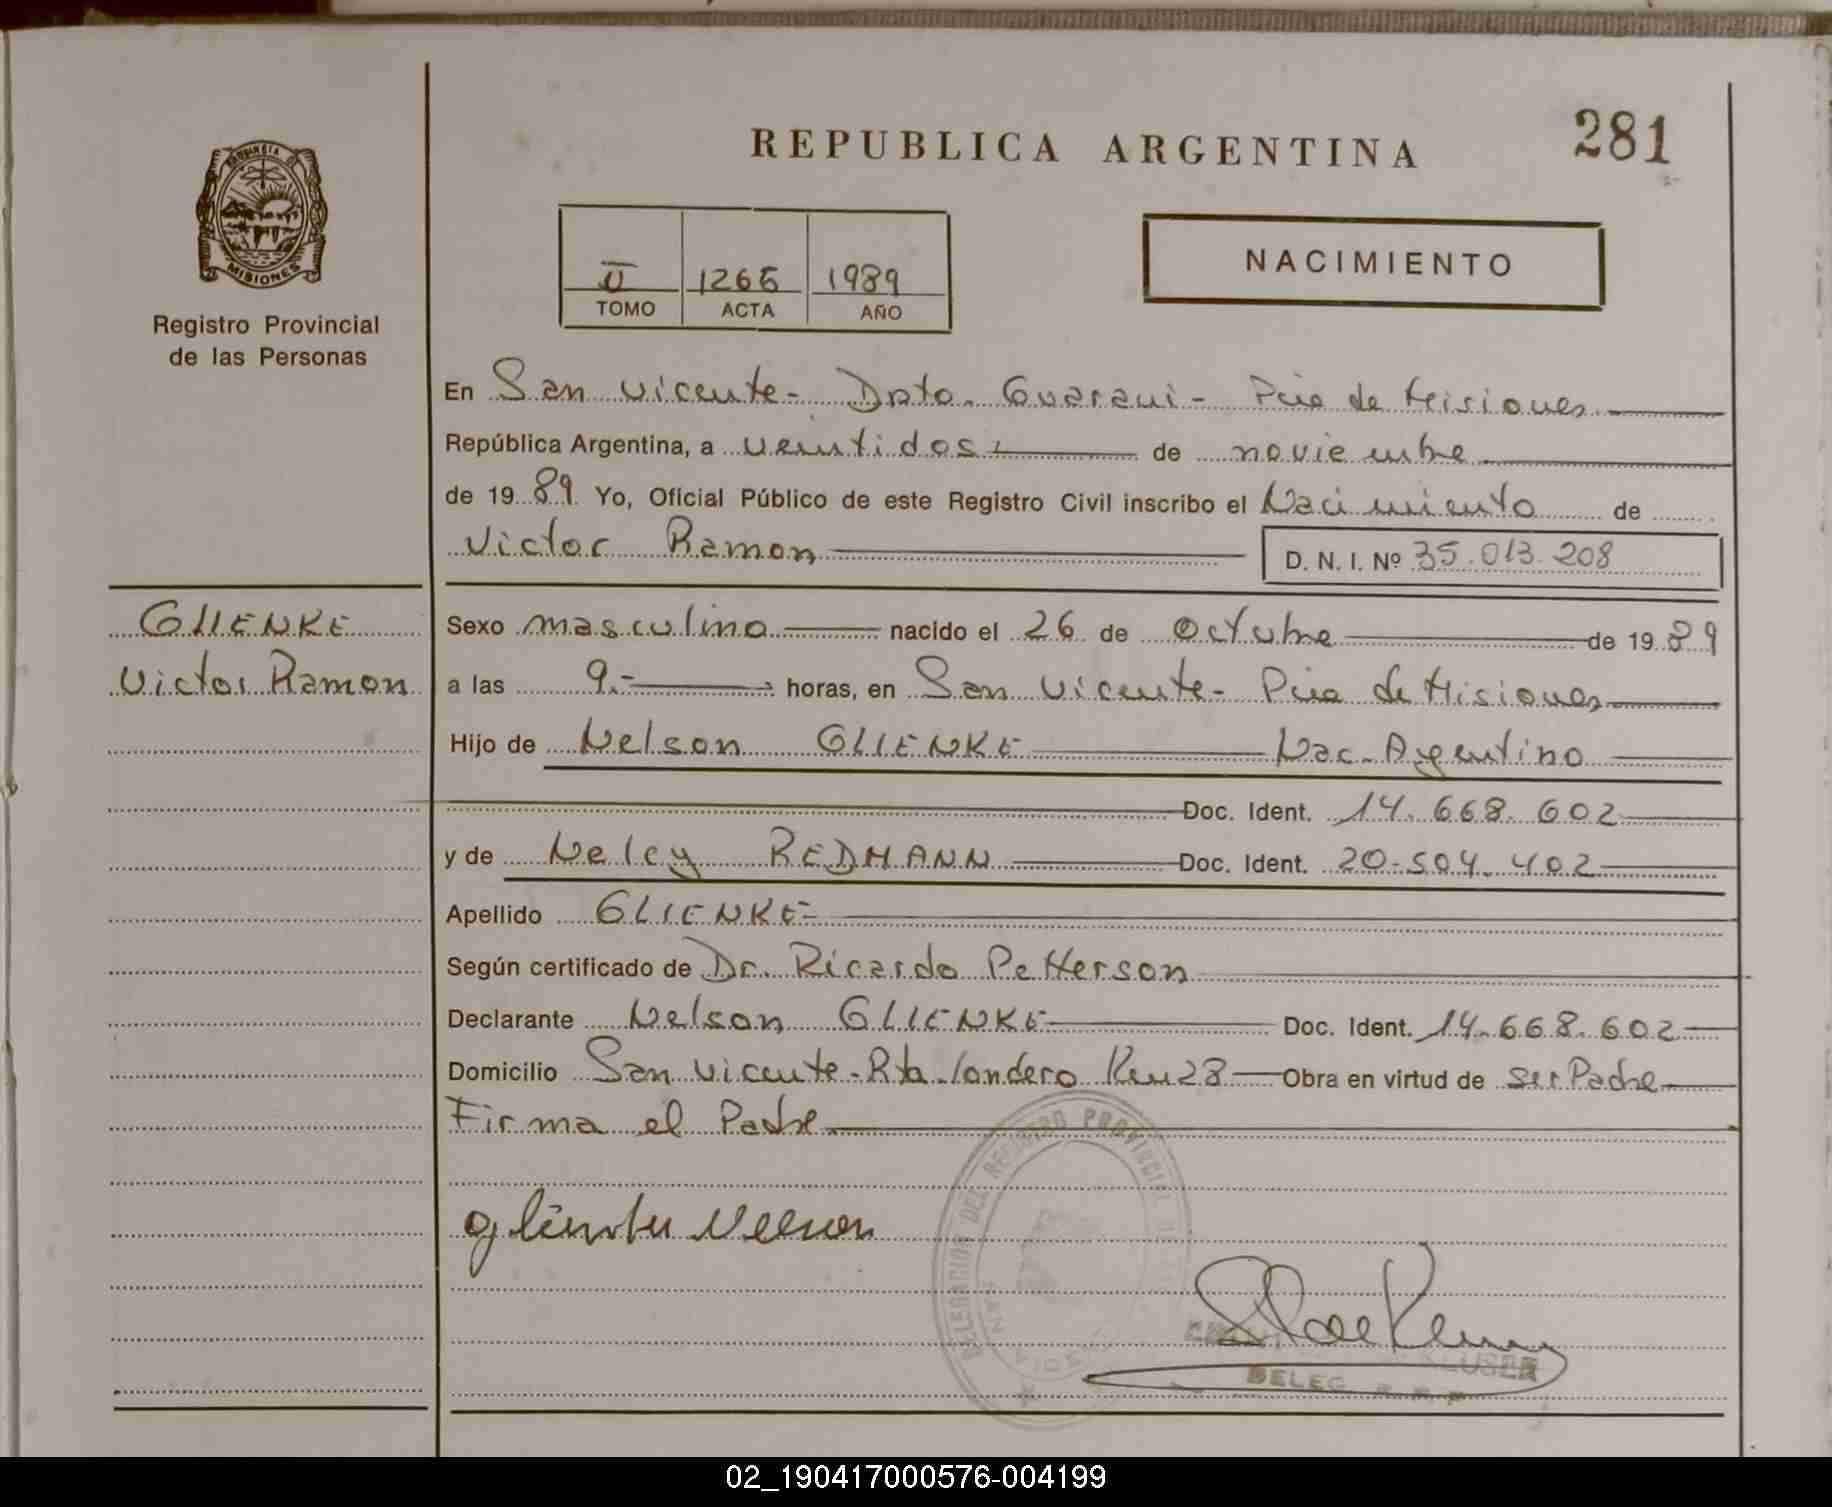 281
REPUBLICA ARGENTINA
PROVINCIA DE
MISIONES
Registro Provincial
de las Personas
NACIMIENTO
1989
TOMO ACTA AÑO
En San Vicente - Dpto. Guarani - Pcia de Misiones
República Argentina, a veintidos de noviembre
de 1989 Yo, Oficial Público de este Registro Civil inscribo el Nacimiento de
Victor Ramon D. N. I. Nº 35.013.208
GLIENKE
Victor Ramon
Sexo masculino nacido el 26 de Octubre de 1989
a las 9.- horas, en San Vicente - Pcia de Misiones
Hijo de Nelson GLIENKE Nac. Argentino
Doc. Ident. 14.668.602
y de Nelcy REDMANN Doc. Ident. 20.504.402
Apellido GLIENKE
Según certificado de Dr. Ricardo Petterson
Declarante Nelson GLIENKE Doc. Ident. 14.668.602
Domicilio San Vicente - Rta. Londero Km 28 Obra en virtud de ser Padre
Firma el Padre
DELEGACION DEL REGISTRO PROVINCIAL DE
SAN VICENTE
KLUSER
DELEG. R. P. P.
02_190417000576-004199